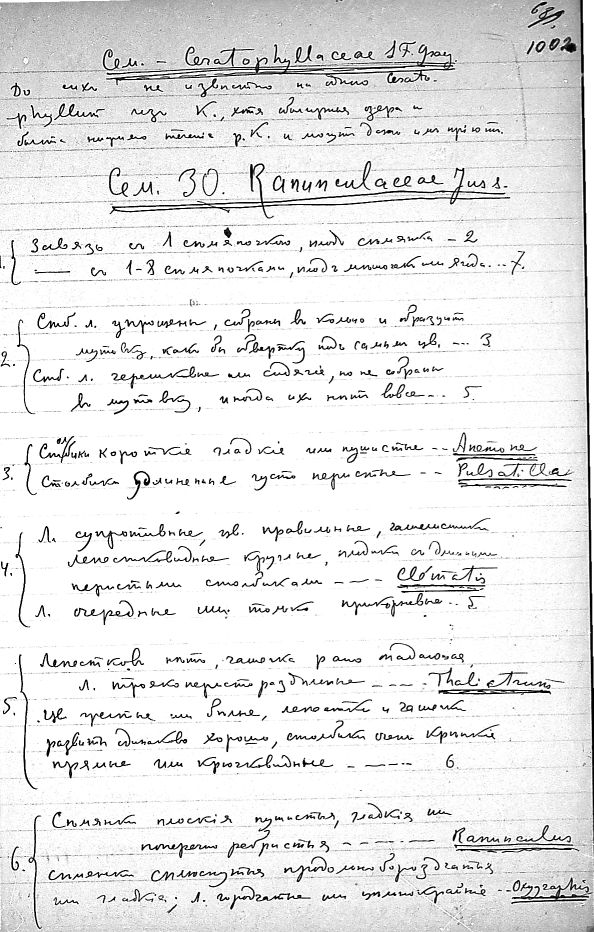 1002
Сем. – Ceratophyllaceae S.F. Gray.
До сихъ не известно ни одного Cerato-
phyllum изъ К., хотя обширныя озера и
болота нижнего теченiя р. К. и могутъ дать имъ прiютъ.
Сем. 30. Ranunculaceae Juss.
1. Завязь съ 1 сѣмяпочкою, плодъ сѣмянка – 2
—— съ 1-8 сѣмяпочками, плодъ мешокъ или ягода... 7.
2. Стб. л. упрощены, собраны въ кольцо и образуютъ
мутовку, какъ бы обвертку подъ самымъ цв. --- 3
Стб. л. черешковые или сидячiе, но не собраны
въ мутовку, иногда ихъ нѣтъ вовсе --- 5.
3. Столбики короткiе гладкiе или пушистые -- Anemone
Столбики удлиненные густо перистые -- Pulsatilla
4. Л. супротивные, цв. правильные, чашелистики
лепестковидные круглые, плодики съ длинными
перистыми столбиками --- Clématis
Л. очередные или только прикорневые.. 5
5. Лепестковъ нѣтъ, чашечка рано опадающая,
Л. троякоперисторазделенные ---- Thalictrum
Цв. желтые или бѣлые, лепестки и чашечка
развиты одинаково хорошо, столбики очень крѣпкiе
прямые или крючковидные ----- 6.
6. Сѣмянки плоскiя пушистыя, гладкiя или
поперечно ребристыя ------ Ranunculus
сѣмянки сплюснутыя продольнобороздчатыя
или гладкiя; Л. городчатые или цѣльнокрайнiе -- Oxygraphis